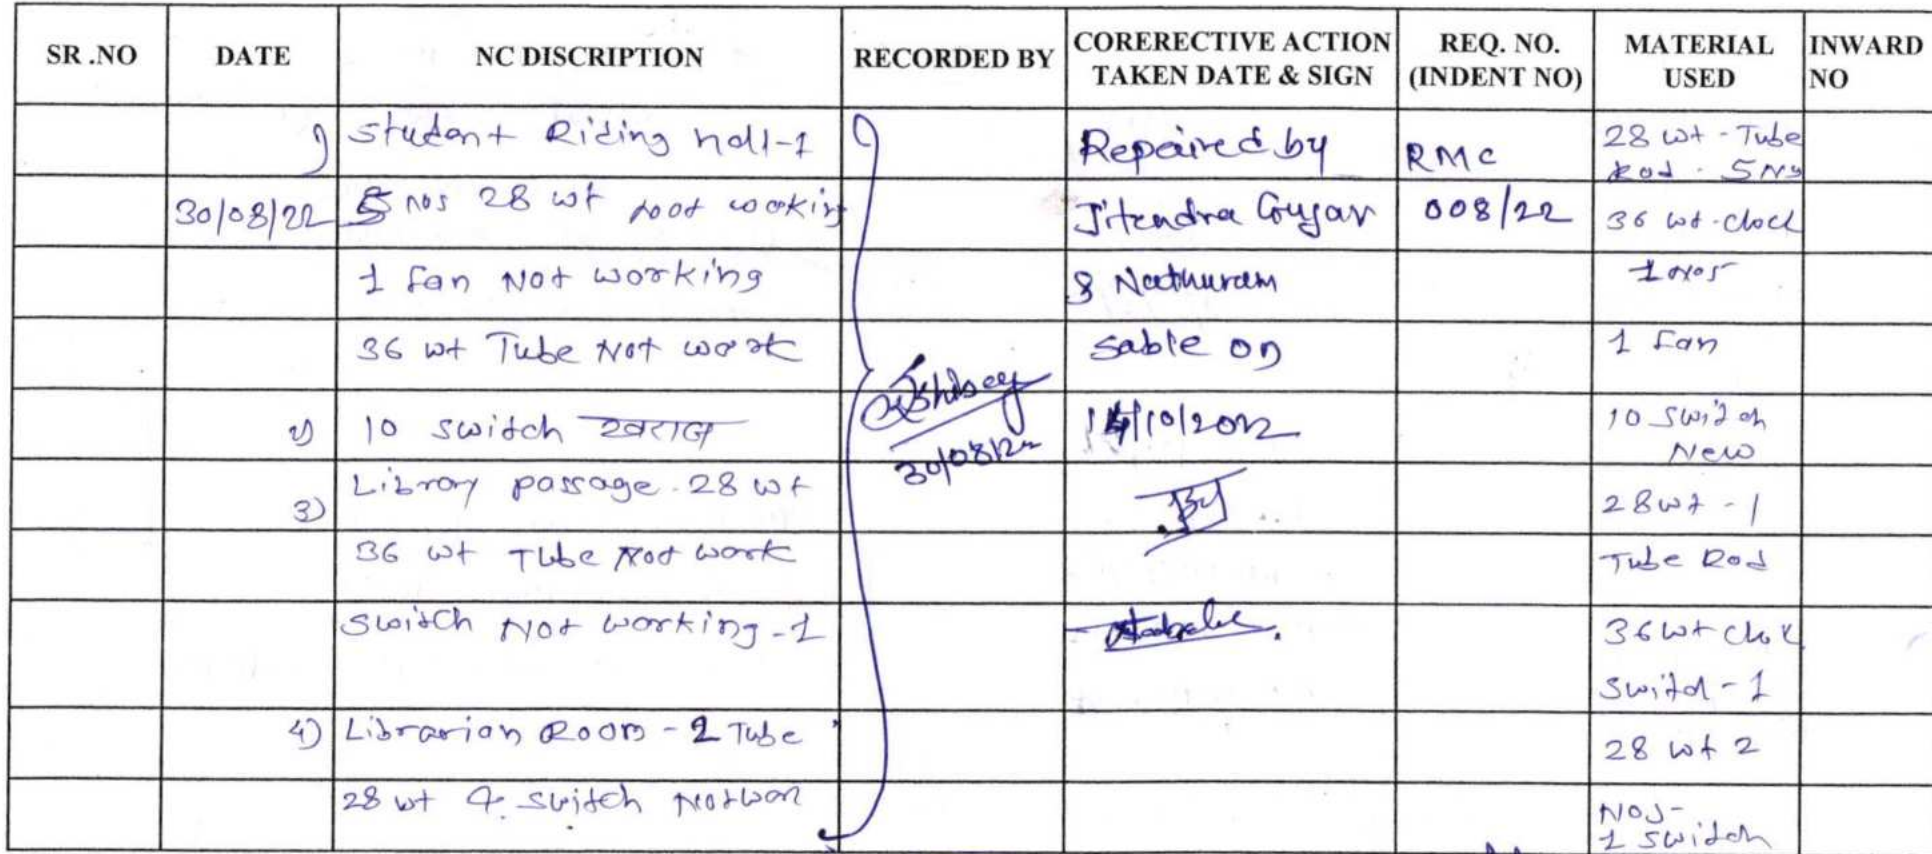 SR .NO DATE NC DISCRIPTION RECORDED BY CORERECTIVE ACTION TAKEN DATE & SIGN REQ. NO. (INDENT NO) MATERIAL USED INWARD NO
1) Student Riding hall-1 Repaired by RMC 28 wt - Tube Rod - 5 Nos
30/08/22 5 nos 28 wt not working Jitendra Gujar 008/22 36 wt - clock
1 fan Not working & Nathuram 1 nos
36 wt Tube Not work sable on 1 Fan
2) 10 switch खराब 30/08/22 14/10/2022 10 switch New
3) Library passage - 28 wt 28 wt - 1
36 wt Tube Not work Tube Rod
Switch Not working - 1 36 wt clok
Switch - 1
4) Librarian Room - 2 Tube 28 wt 2
28 wt 4 switch Not wor Nos - 1 switch